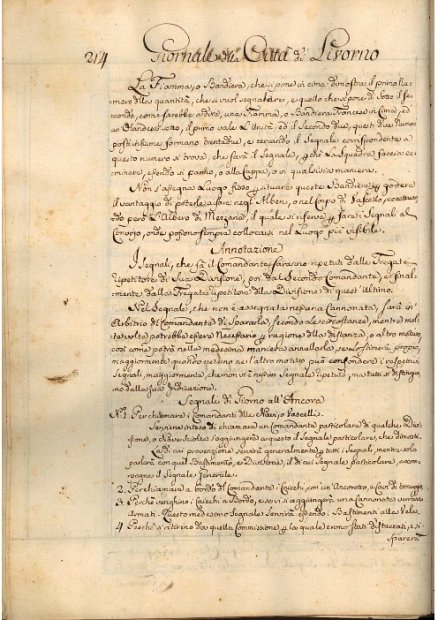 214 Giornale della Città di Livorno
La Fiamma, o Bandiera, che si pone in cima dimostra il primo Nu-
mero della quantità, che si vuol segnalare, e quello che si pone di sotto il se-
condo, come sarebbe a dire, una Fiamma, o Bantiera Francese in Cima, ed
una Olandese sotto, il primo vale l'Unità ed il secondo due, questi due Numeri
posti insieme formano trentadue, e cercando il Segnale corrispondente a
questo numero si trova, che sarà il Segnale, che la Squadra faccia ca-
minare, essendo in panno, o alla Cappa, o in qualsivisia maniera.
Non s'assegna Luogo fisso situare queste Bandiere godere
il vantaggio di poterle alzare negli Alberi, o nel Corpo di Vascello, eccettuan-
dosi però l'Albero di Mezzana, il quale si riserva farsi Segnali al
Convojo, onde possono sempre collocarsi nel Luogo più visibile.
Annotazione
I Segnali, che fà il Comandante saranno ripetuti dalle Fregate
ripetitore di sua Divisione, poi dal Secondo Comandante, e final-
mente dalla Fregata ripetitore della Divisione di quest'ultimo.
Nel Segnale, che non è assegnata nessuna Cannonata, sarà in
Arbitrio del Comandante di spararla, secondo le circostanze, mentre mol-
te volte potrebbe essere necessario ragione della distanza, o altro motivo,
così come potrà nella medesima maniera annullarla, se lo stimerà proprio,
maggiormente quando nè uno nè l'altro motivo può confondere i rispettivi
segnali, maggiormente che non vi è nessun Segnale ripetuto, ma tutti si distinguo-
no dalla sua Indicazione.
Segnali di Giorno all'Ancora
N.º 1. Per chiamare i Comandanti delle Navi, o Vascelli.
Se viene inteso di chiamare un Comandante particolare di qualche Divi-
sione, o Nave sciolta s'aggiungerà a questo il Segnale particolare, che dinoti.
La di cui prevenzione servirà generalmente tutti i Segnali, mentre vola
parlare con quel Bastimento, o Divisione, il di cui Segnale particolare, acom-
pagna il Segnale Generale.
2. Per chiamare a bordo del Comandante i Caicchi, con un Ancoroto, e Cavi di tonneggio.
3. Perchè venghino i Caicchi a Bordo, e se vi si aggiungerà una Cannonata verranno
Armati. Questo medesimo Segnale servirà essendo i Bastimenti alla Vela.
4. Perchè si ritirino da quella Commissione, la quale erano stati Distaccati, e si
sparerà